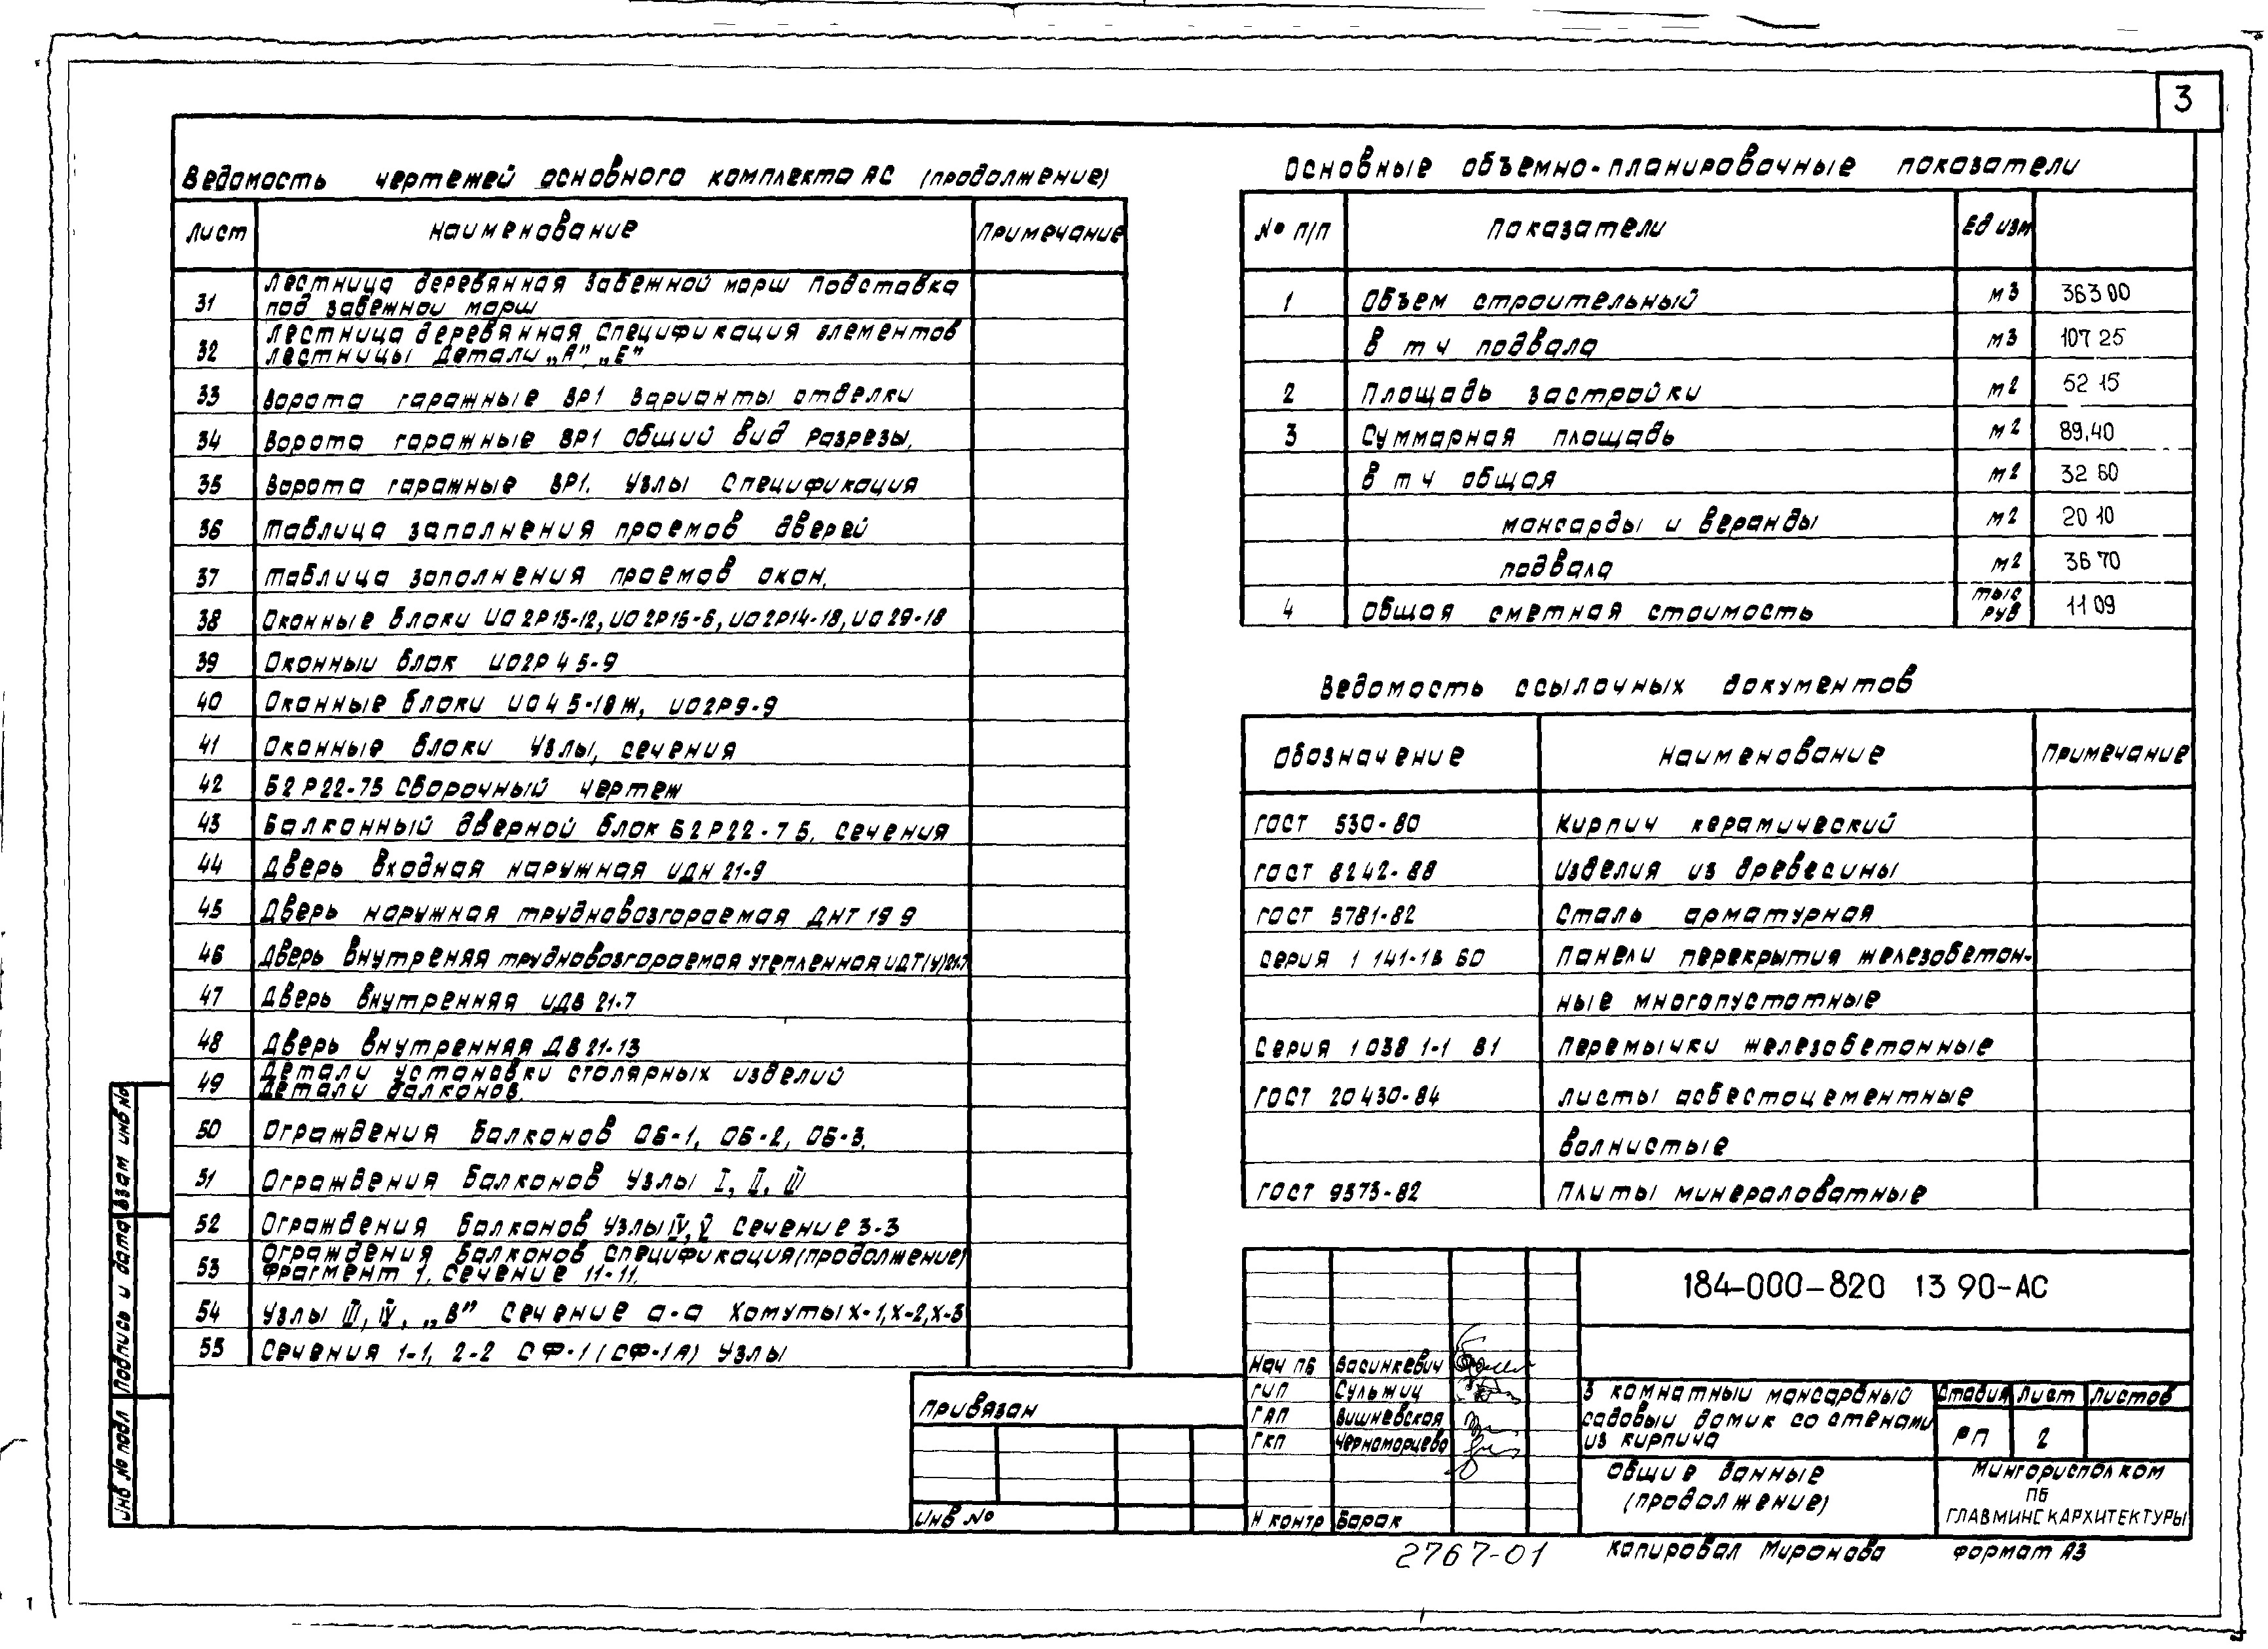 3
Ведомость чертежей основного комплекта АС (продолжение)
Лист Наименование Примечание
31 Лестница деревянная Забежной марш Подставка
под забежной марш
32 Лестница деревянная Спецификация элементов
лестницы Детали „А", „Е"
33 Ворота гаражные ВР1 Варианты отделки
34 Ворота гаражные ВР1 Общий вид Разрезы.
35 Ворота гаражные ВР1. Узлы Спецификация
36 Таблица заполнения проемов дверей
37 Таблица заполнения проемов окон.
38 Оконные блоки ИО2Р15-12, ИО2Р15-6, ИО2Р14-18, ИО29-18
39 Оконный блок ИО2Р 4 5-9
40 Оконные блоки ИО4 5-18Ж, ИО2Р9-9
41 Оконные блоки Узлы, сечения
42 Б2Р22-75 Сборочный чертеж
43 Балконный дверной блок Б2Р22-7 5. Сечения
44 Дверь входная наружная ИДН 21-9
45 Дверь наружная трудновозгораемая ДНТ 19 9
46 Дверь внутреняя трудновозгораемая утепленная ИДТ(У)21-7
47 Дверь внутренняя ИДВ 21-7
48 Дверь внутренняя ДВ21-13
49 Детали установки столярных изделий
Детали балконов.
50 Ограждения балконов ОБ-1, ОБ-2, ОБ-3.
51 Ограждения балконов Узлы I, II, III
52 Ограждения балконов Узлы IV, V Сечение 3-3
53 Ограждения балконов Спецификация (продолжение)
Фрагмент 1. Сечение 11-11.
54 Узлы III, IV, „В" Сечение а-а Хомуты Х-1, Х-2, Х-3
55 Сечения 1-1, 2-2 СФ-1 (СФ-1А) Узлы
Основные объемно-планировочные показатели
№ п/п Показатели Ед изм
1 Объем строительный м3 363 00
в т ч подвала м3 107 25
2 Площадь застройки м2 52 15
3 Суммарная площадь м2 89,40
в т ч общая м2 32 60
мансарды и веранды м2 20 10
подвала м2 36 70
4 Общая сметная стоимость тыс руб 11 09
Ведомость ссылочных документов
Обозначение Наименование Примечание
ГОСТ 530-80 Кирпич керамический
ГОСТ 8242-88 Изделия из древесины
ГОСТ 5781-82 Сталь арматурная
Серия 1 141-1 в 60 Панели перекрытия железобетон-
ные многопустотные
Серия 1 038 1-1 в1 Перемычки железобетонные
ГОСТ 20430-84 Листы асбестоцементные
волнистые
ГОСТ 9573-82 Плиты минераловатные
184-000-820 13 90-АС
Нач ПБ Васинкевич
ГИП Сульжиц
ГАП Вишневская
ГКП Черноморцева
Н контр Барак
3 комнатный мансардный
садовый домик со стенами
из кирпича
Стадия Лист Листов
РП 2
Общие данные
(продолжение)
Мингорисполком
ПБ
ГЛАВМИНСКАРХИТЕКТУРЫ
Привязан
Инв №
Инв № подл Подпись и дата Взам инв №
2767-01 Копировал Миронова Формат А3